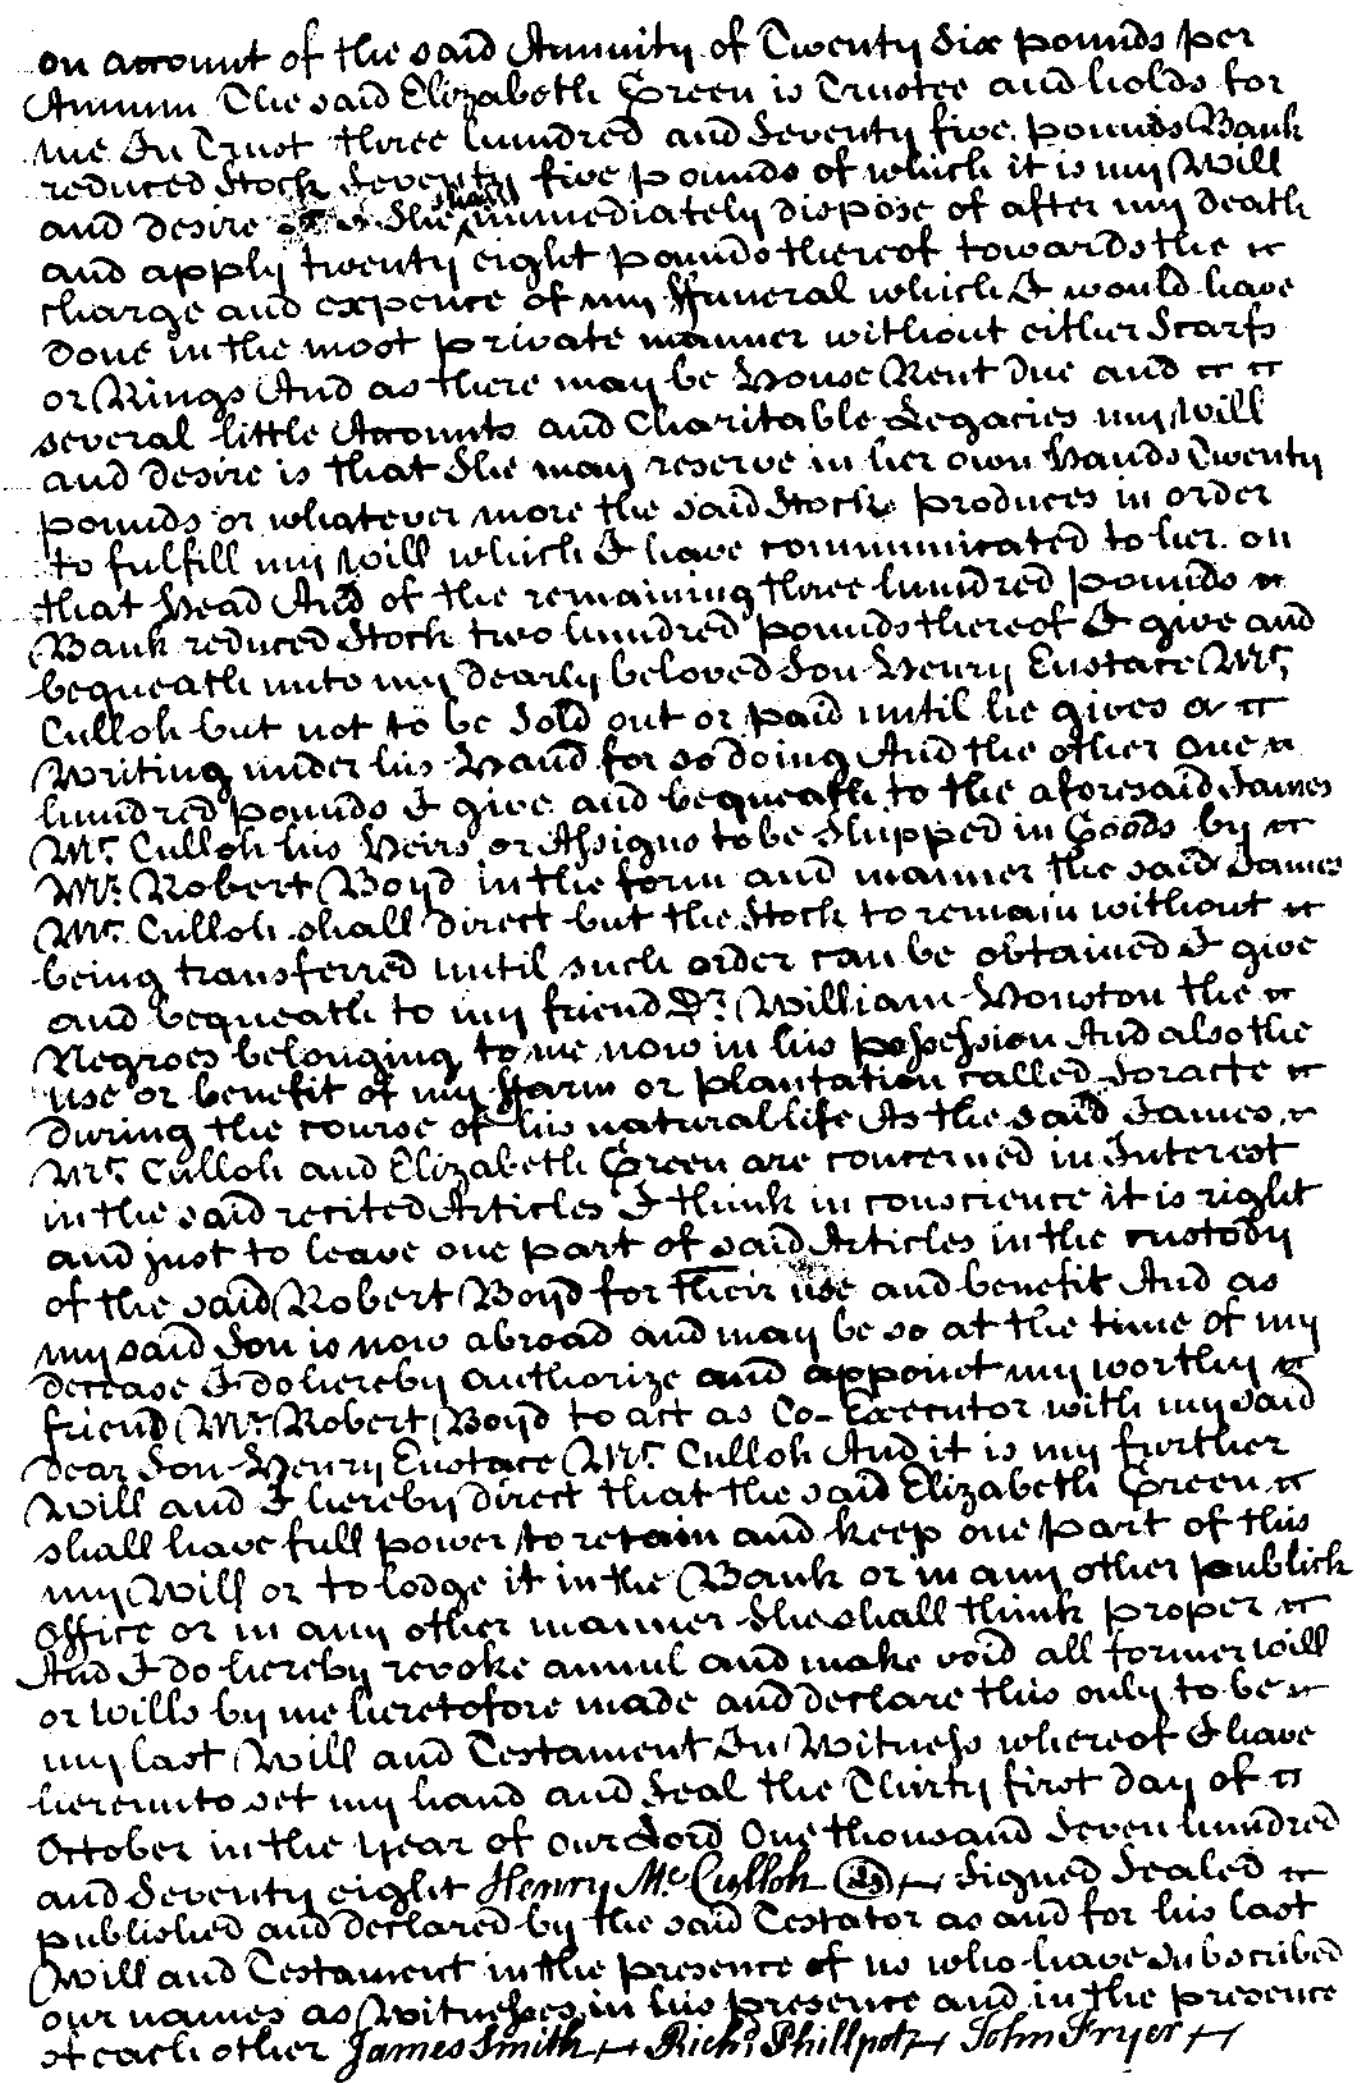 on account of the said Annuity of Twenty Six pounds per
Annum The said Elizabeth Green is Trustee and holds for
me In Trust three hundred and Seventy five pounds Bank
reduced Stock Seventy five pounds of which it is my Will
and desire She shall immediately dispose of after my death
and apply twenty eight pounds thereof towards the
charge and expence of my ffuneral which I would have
done in the most private manner without either Scarfs
or Rings And as there may be House Rent due and
several little Accounts and Charitable Legacies my Will
and desire is that She may reserve in her own Hands Twenty
pounds or whatever more the said Stock produces in order
to fulfill my Will which I have communicated to her on
that Head And of the remaining three hundred pounds
Bank reduced Stock two hundred pounds thereof I give and
bequeath unto my dearly beloved Son Henry Eustace Mc.
Culloh but not to be Sold out or paid until he gives a
Writing under his Hand for so doing And the other one
hundred pounds I give and bequeath to the aforesaid James
Mc. Culloh his Heirs or Assigns to be Shipped in Goods by
Mr. Robert Boyd in the form and manner the said James
Mc. Culloh shall direct but the Stock to remain without
being transferred until such order can be obtained I give
and bequeath to my friend Dr. William Houston the
Negroes belonging to me now in his possession And also the
use or benefit of my ffarm or plantation called Soracte
during the course of his natural life As the said James
Mc. Culloh and Elizabeth Green are concerned in Interest
in the said recited Articles I think in conscience it is right
and just to leave one part of said Articles in the custody
of the said Robert Boyd for their use and benefit And as
my said Son is now abroad and may be so at the time of my
decease I do hereby authorize and appoint my worthy
friend Mr. Robert Boyd to act as Co-Executor with my said
dear Son Henry Eustace Mc. Culloh And it is my further
Will and I hereby direct that the said Elizabeth Green
shall have full power to retain and keep one part of this
my Will or to lodge it in the Bank or in any other publick
Office or in any other manner She shall think proper
And I do hereby revoke annul and make void all former will
or wills by me heretofore made and declare this only to be
my last Will and Testament In Witness whereof I have
hereunto set my hand and Seal the Thirty first day of
October in the year of our Lord One thousand Seven hundred
and Seventy eight Henry Mc. Culloh LS Signed Sealed
published and declared by the said Testator as and for his last
Will and Testament in the presence of us who have Subscribed
our names as Witnesses in his presence and in the presence
of each other James Smith Richd. Phillpot John Fryer